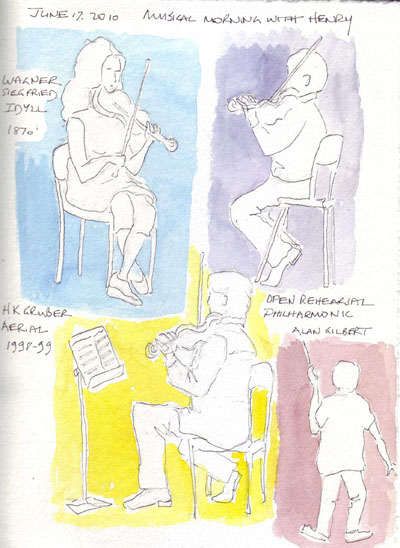 JUNE 17. 2010 MUSICAL MORNING WITH HENRY
WAGNER
SIEGFRIED
IDYLL
1870
HK GRUBER
AERIAL
1998-99
OPEN REHEARSAL
PHILHARMONIC
ALAN GILBERT